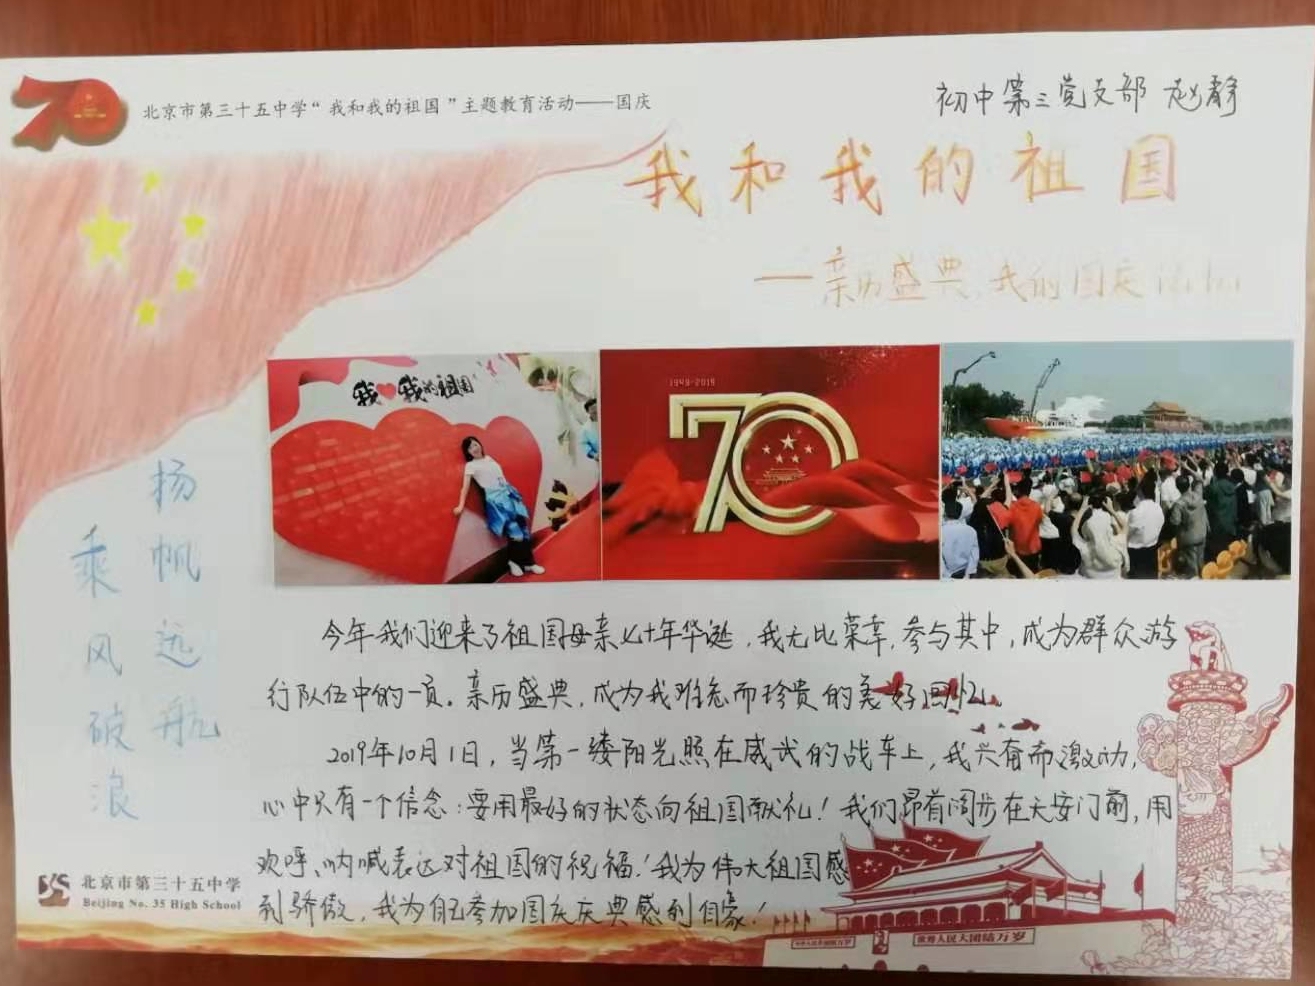 北京市第三十五中学“我和我的祖国”主题教育活动——国庆
初中第三党支部 赵静
我和我的祖国
——亲历盛典,我的国庆
我 我的祖国
1949-2019
70
扬帆远航
乘风破浪
今年我们迎来了祖国母亲七十年华诞,我无比荣幸,参与其中,成为群众游
行队伍中的一员。亲历盛典,成为我难忘而珍贵的美好回忆。
2019年10月1日,当第一缕阳光照在威武的战车上,我兴奋而激动,
心中只有一个信念:要用最好的状态向祖国献礼!我们昂首阔步在天安门前,用
欢呼、呐喊表达对祖国的祝福!我为伟大祖国感
到骄傲,我为自己参加国庆庆典感到自豪!
北京市第三十五中学
Beijing No. 35 High School
世界人民大团结万岁